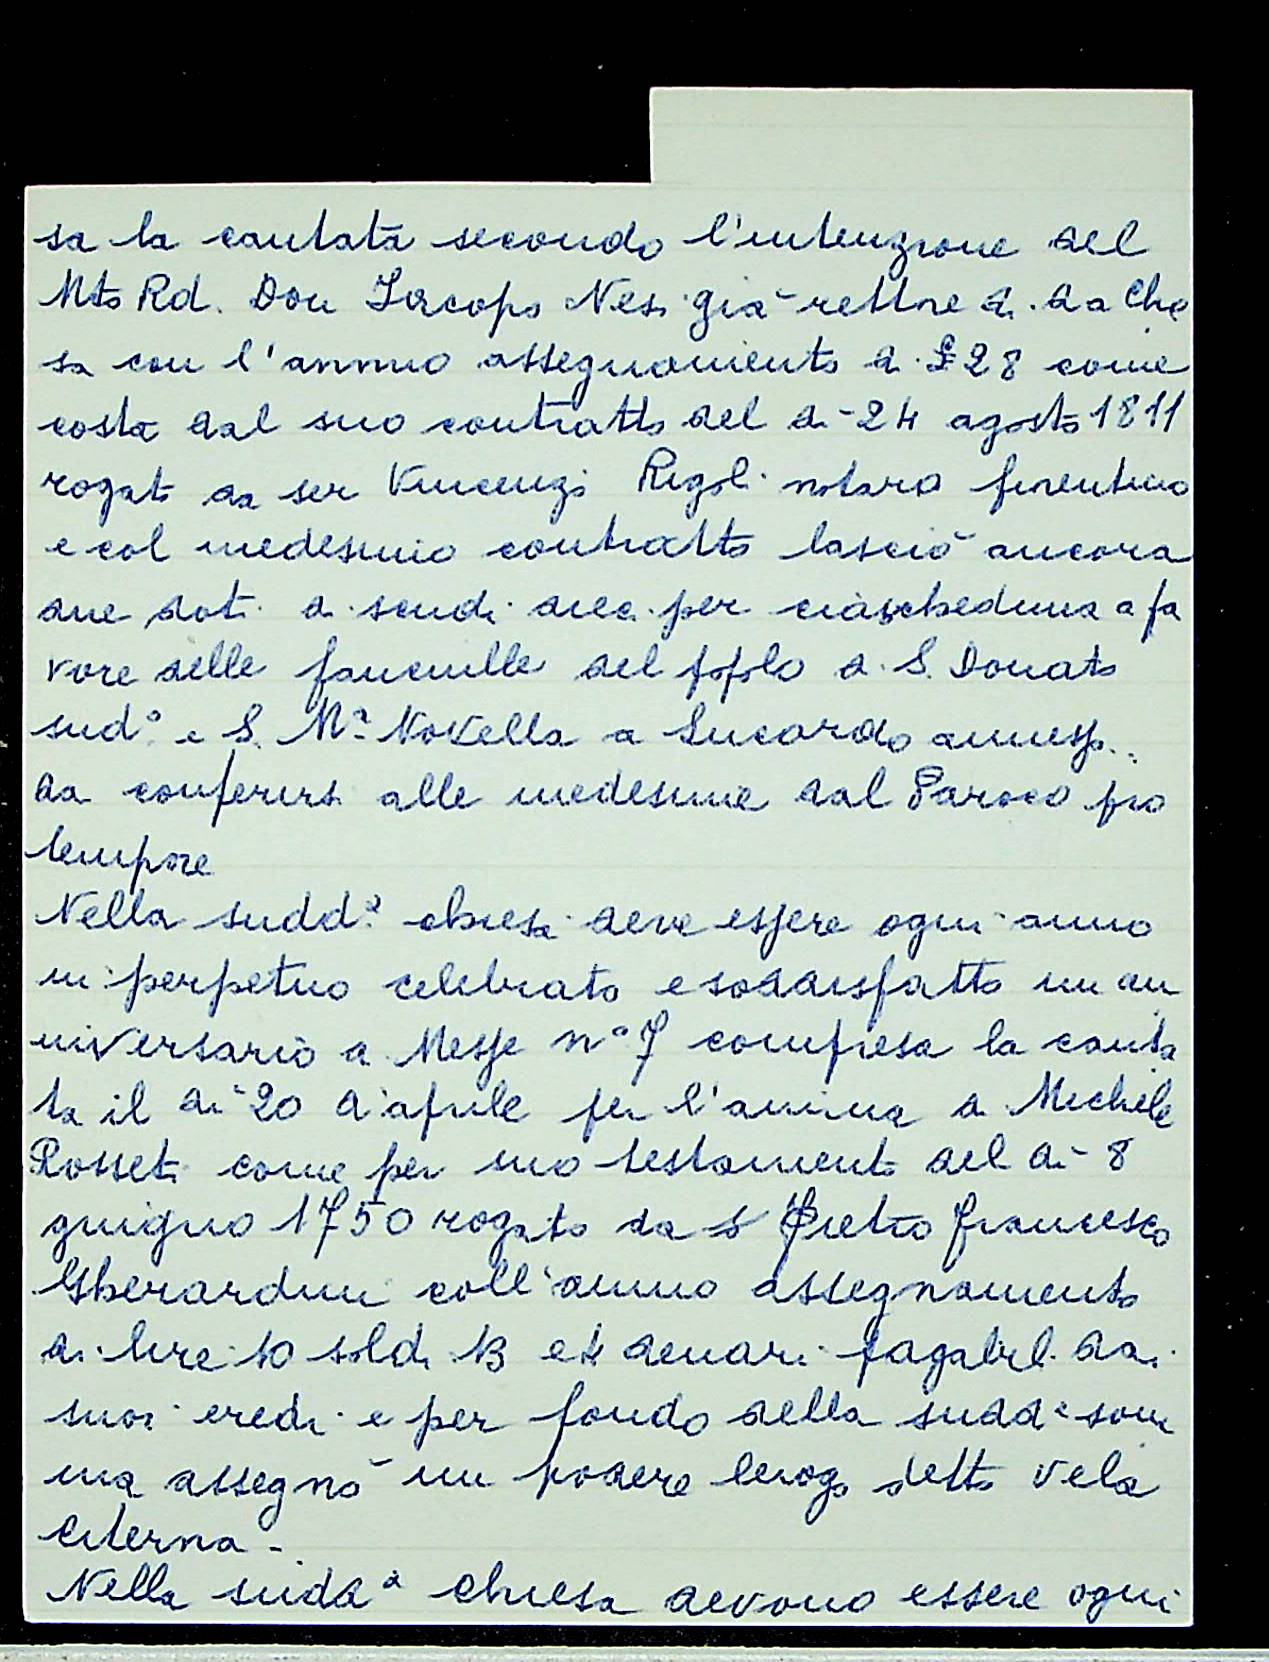 sa la cantata secondo l'intenzione del
Mto Rd. Don Iacopo Nesi già rettore di da Chie
sa con l'annuo assegnamento di £ 28 come
costa dal suo contratto del dì 24 agosto 1811
rogato da ser Vincenzo Rigoli notaro fiorentino
e col medesimo contratto lasciò ancora
due doti di scudi dieci per ciascheduna a fa
vore delle fanciulle del popolo di S. Donato
sud.o e S. M.a Novella a Lucardo annessi..
da conferirsi alle medesime dal Paroco pro
tempore
Nella sudd.a chiesa deve essere ogni anno
in perpetuo celebrato e soddisfatto un an
niversario di Messe n.o 7 compresa la canta
ta il dì 20 d'aprile per l'anima di Michele
Rosseti come per suo testamento del dì 8
giuigno 1750 rogato da S Pietro Francesco
Gherardini coll'annuo assegnamento
di lire 10 soldi 13 e 4 denari pagabili dai
suoi eredi e per fondo della sudd.a som
ma assegnò un podere luogo detto Vela
Citerna -
Nella sudd.a Chiesa devono essere ogni